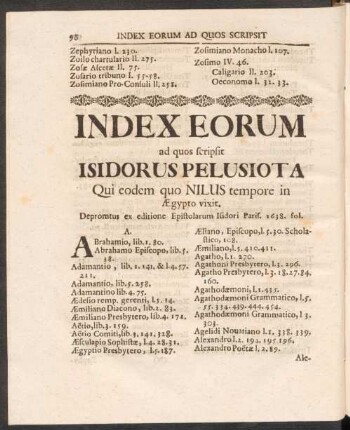 98 INDEX EORUM AD QUOS SCRIPSIT
Zephyriano l. 230.
Zoilo chartulario II. 275.
Zosæ Ascetæ II. 75.
Zosario tribuno I. 55-58.
Zosimiano Pro-Consuli II, 252.
Zosimiano Monacho l. 107.
Zosimo IV. 46.
Caligario II. 203.
Oeconomo l. 32. 33.
INDEX EORUM
ad quos scripsit
ISIDORUS PELUSIOTA
Qui eodem quo NILUS tempore in
Ægypto vixit.
Depromtus ex editione Epistolarum Isidori Paris. 1638. fol.
A.
ABrahamio, lib. 1. 80.
Abrahamo Episcopo, lib. 5.
38.
Adamantio, lib, 1. 141. & l.4.57.
211.
Adamantio, lib, 5. 258.
Adamantino lib 4. 75.
Ædesio remp. gerenti, l.5. 14.
Æmiliano Diacono, lib. 1. 83.
Æmiliano Presbytero, lib.4. 172.
Aëtio, lib. 3. 159.
Aëtio Comiti, lib 3. 141. 328.
Æsculapio Sophistæ, l.4. 28.31.
Ægyptio Presbytero, l.5.187.
Æliano, Episcopo, l.5.30. Schola-
stico, 108.
Æmiliano, l.5. 410.411.
Agatho, l.1. 270.
Agathoni Presbytero, l.5. 296.
Agatho Presbytero, l.3. 18.27.84.
160.
Agathodæmoni, l.1.435.
Agathodæmoni Grammatico, l.5,
55. 334. 439. 444. 454.
Agathodæmoni Grammatico, l 3.
303.
Agelidi Novatiano l.1. 338. 339.
Alexandro l.2. 192. 195 196.
Alexandro Poëtæ l. 2. 87.
Ale-